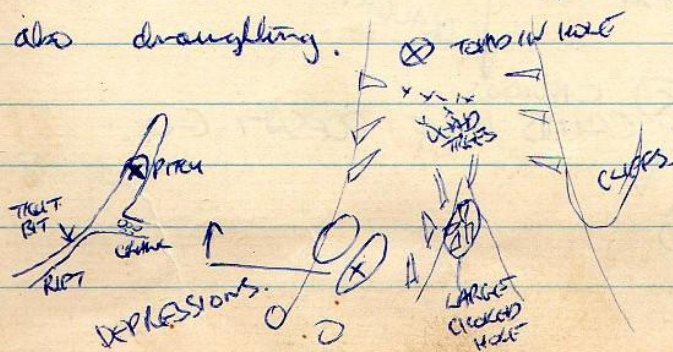 also draughting.
⊗ TOAD IN HOLE
DEAD
TREES
PITCH
CLIFFS
TIGHT
BIT
CRAWL
RIFT
DEPRESSIONS.
LARGE
CHOKED
HOLE